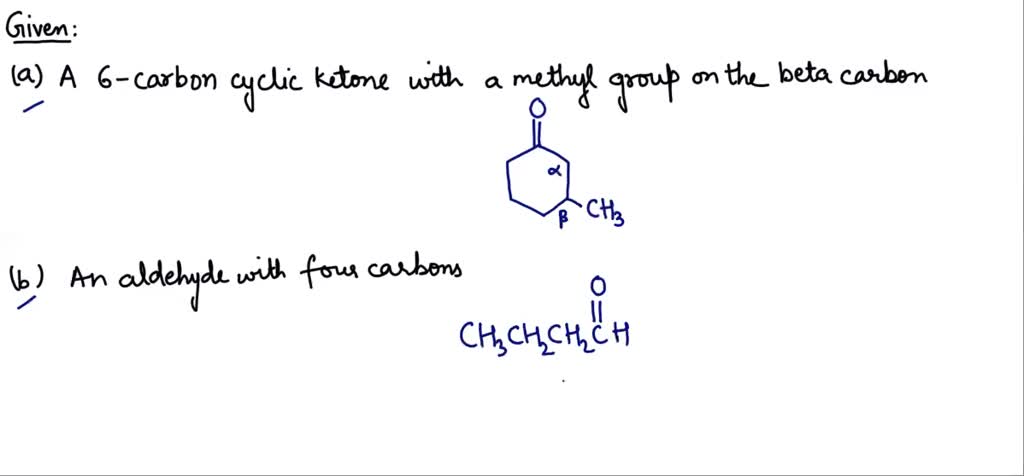 Given:
(a) A 6-carbon cyclic ketone with a methyl group on the beta carbon
O
α
β CH₃
(b) An aldehyde with four carbons
O
CH₃CH₂CH₂CH